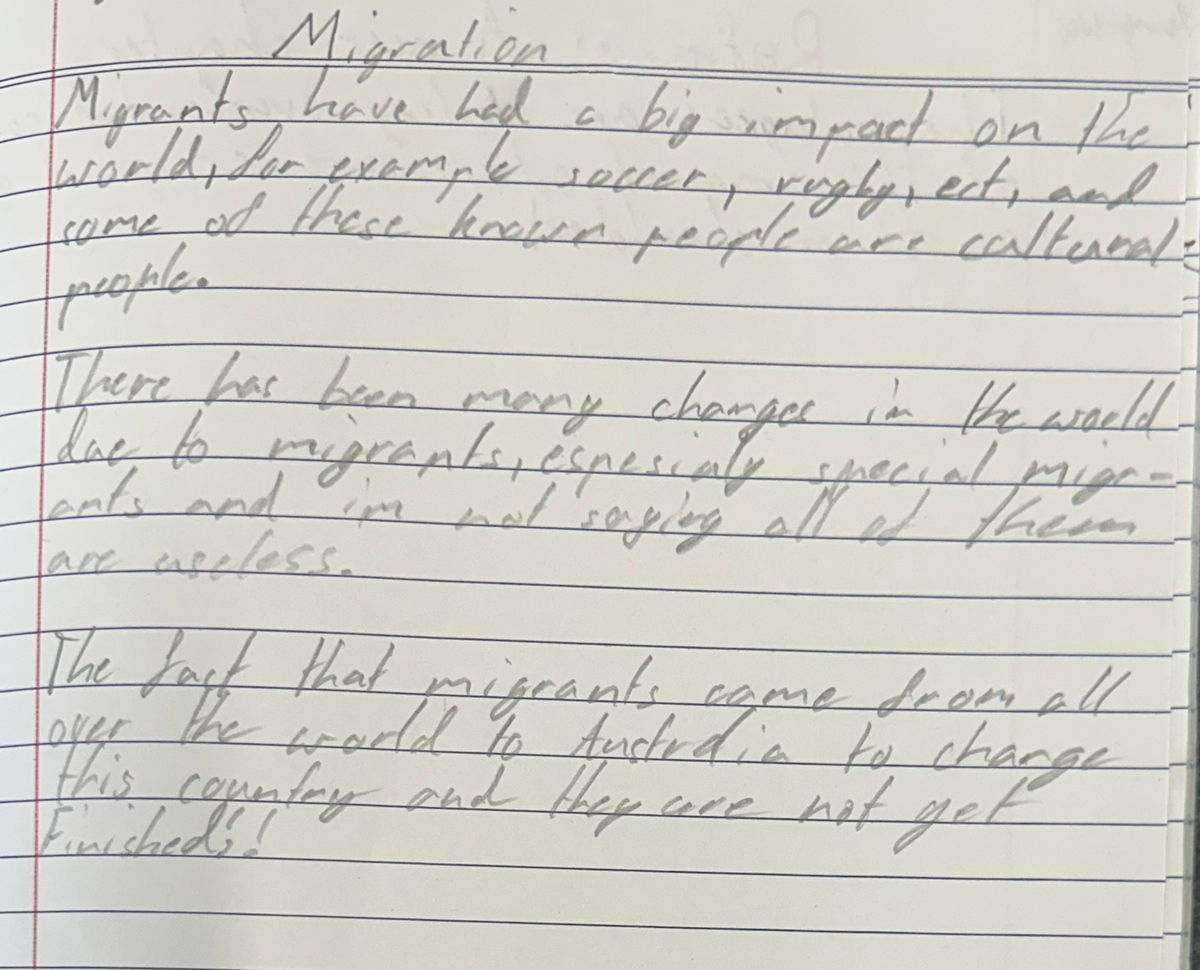 Migration
Migrants have had a big impact on the
world, for example soccer, rugby, ect, and
some of these known people are cultural
people.
There has been many changes in the world
due to migrants, espesialy special migr-
ants and im not saying all of them
are useless.
The fact that migrants came from all
over the world to Australia to change
this country and they are not yet
Finished!!